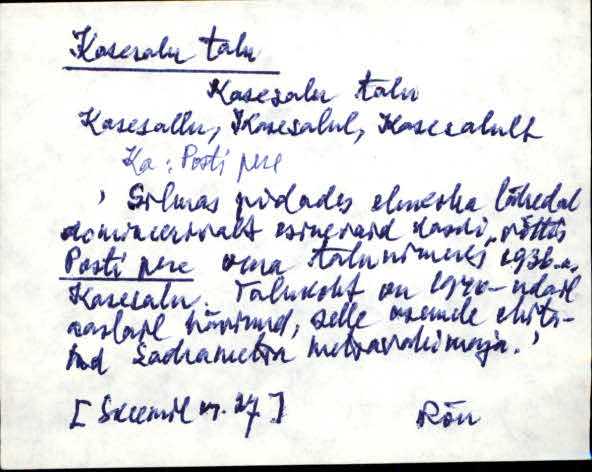 Kasesalu talu
Kasesalu talu
Kasesallu, Kasesalul, Kasesalult
Ka: Posti pere
' Silmas pidades elukoha lähedal
domineerivalt esinevaid kaski, võttis
Posti pere oma talu nimeks 1936. a.
Kasesalu. Talukoht on 1940-ndail
aastail hävinud, selle asemele ehita-
tud Sadrametsa metsavahimaja.'
[Skeemil nr. 27] Rõu